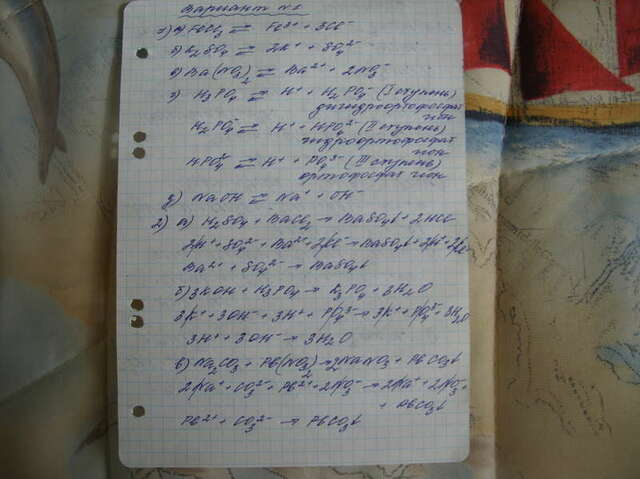 Вариант №1
1) а) FeCl₃ ⇄ Fe³⁺ + 3Cl⁻
б) K₂SO₄ ⇄ 2K⁺ + SO₄²⁻
в) Ba(NO₃)₂ ⇄ Ba²⁺ + 2NO₃⁻
г) H₃PO₄ ⇄ H⁺ + H₂PO₄⁻ (I ступень)
дигидроортофосфат
ион
H₂PO₄⁻ ⇄ H⁺ + HPO₄²⁻ (II ступень)
гидроортофосфат
ион
HPO₄²⁻ ⇄ H⁺ + PO₄³⁻ (III ступень)
ортофосфат ион
д) NaOH ⇄ Na⁺ + OH⁻
2) а) H₂SO₄ + BaCl₂ → BaSO₄↓ + 2HCl
2H⁺ + SO₄²⁻ + Ba²⁺ + 2Cl⁻ → BaSO₄↓ + 2H⁺ + 2Cl⁻
Ba²⁺ + SO₄²⁻ → BaSO₄↓
б) 3KOH + H₃PO₄ → K₃PO₄ + 3H₂O
3K⁺ + 3OH⁻ + 3H⁺ + PO₄³⁻ → 3K⁺ + PO₄³⁻ + 3H₂O
3H⁺ + 3OH⁻ → 3H₂O
в) Na₂CO₃ + Pb(NO₃)₂ → 2NaNO₃ + PbCO₃↓
2Na⁺ + CO₃²⁻ + Pb²⁺ + 2NO₃⁻ → 2Na⁺ + 2NO₃⁻ +
+ PbCO₃↓
Pb²⁺ + CO₃²⁻ → PbCO₃↓